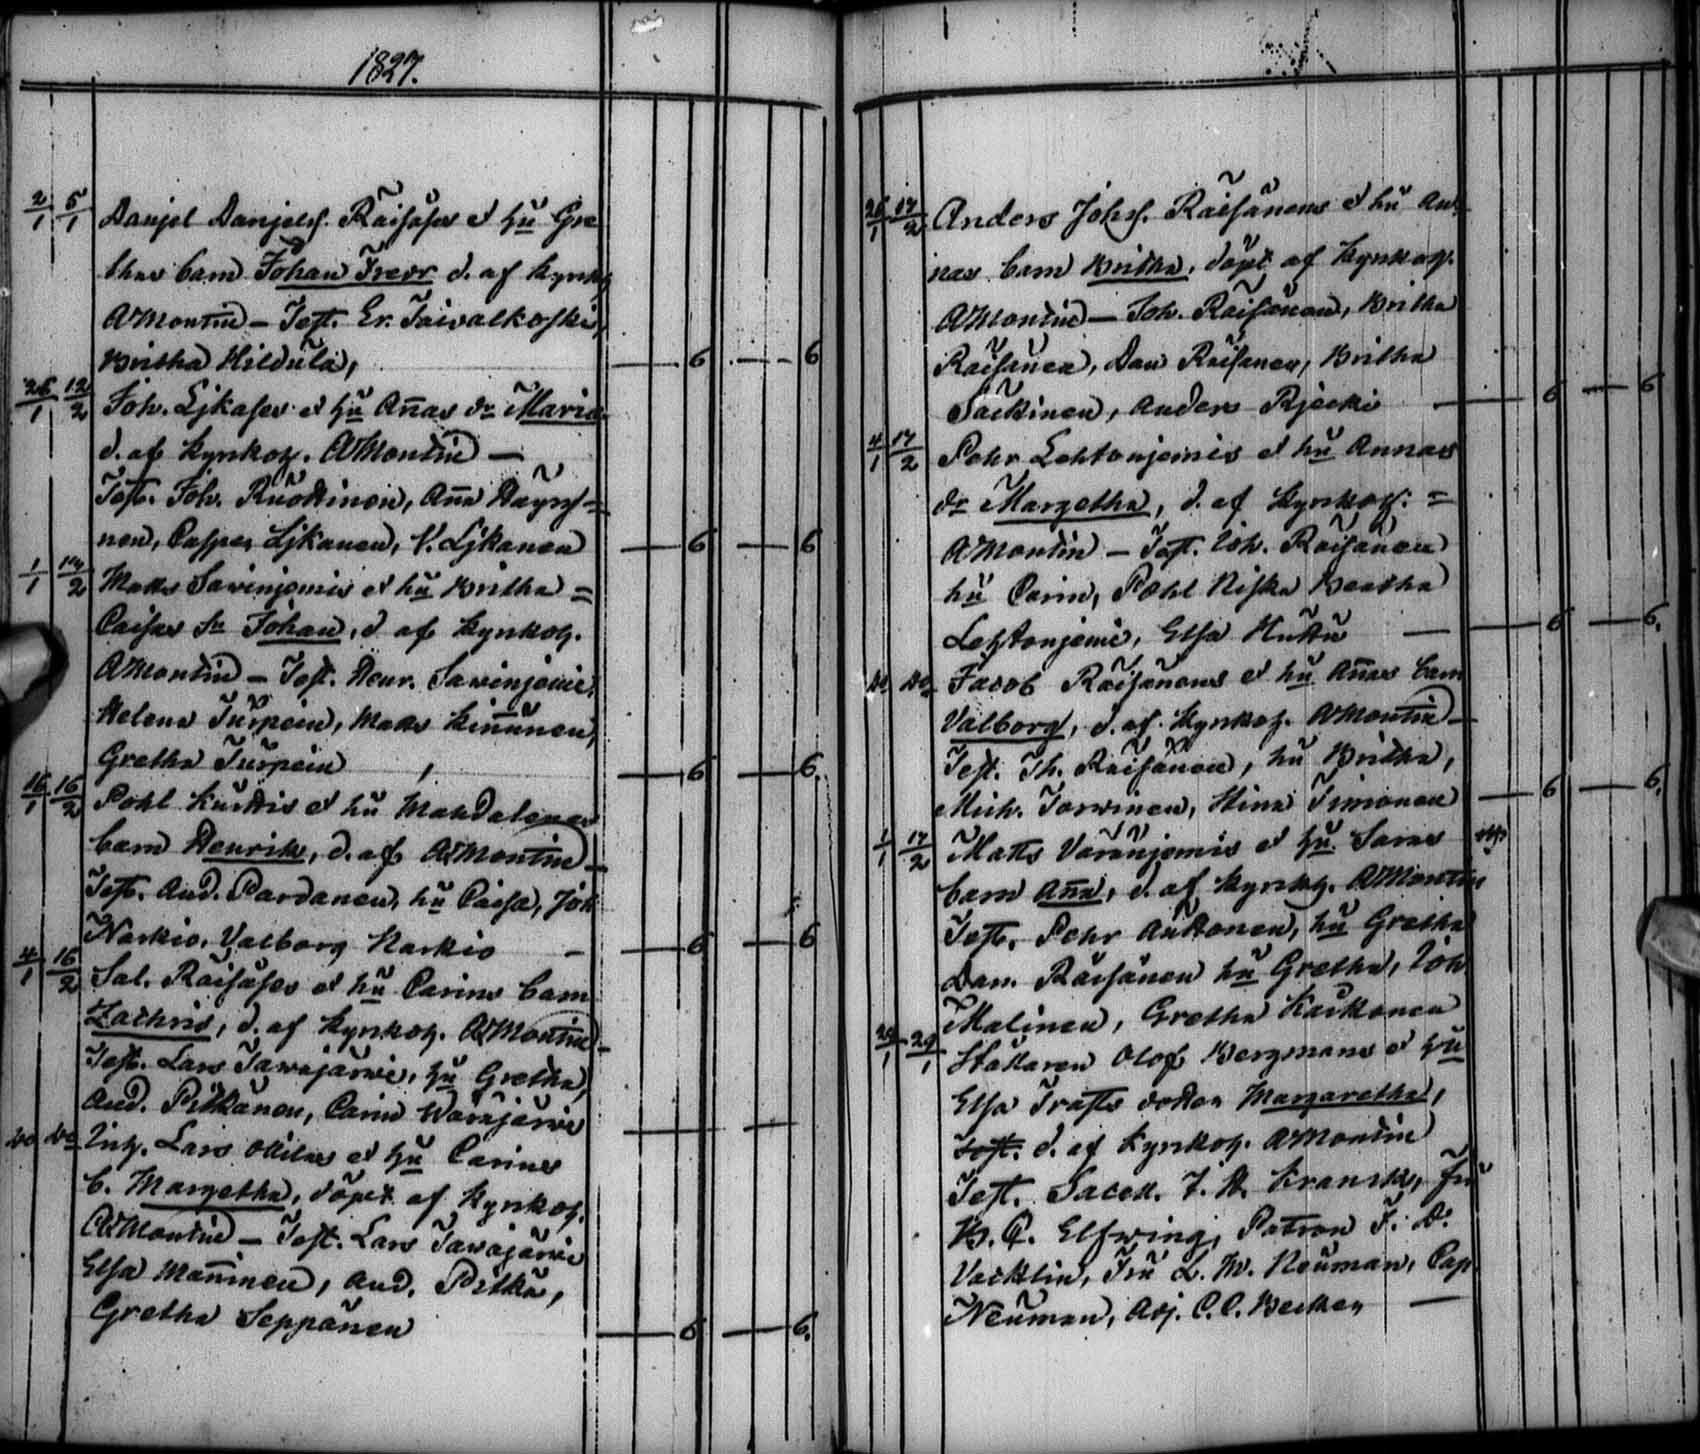 1827.
2/1 5/1 Danjel Danjelss. Räisäses et hŭ Gre
thas barn Johan Ivar d. af kyrkoh
AMontin – Test. Er. Taivalkoski,
Britha Hildula, — 6 — 6
26/1 12/2 Joh. Ljkases et hŭ Añas dr Maria
d. af kyrkoh. AMontin —
Test. Joh. Ruottinen, Aña Häyry=
nen, Casper Ljkanen, V. Ljkanen — 6 — 6
1/1 14/2 Matts Savinjemis et hŭ Britha =
Caisas Sr Johan, d af kyrkoh.
AMontin – Test. Henr. Savinjemi,
Helena Turpein, Matts Kinnunen,
Gretha Turpein — 6 — 6.
16/1 16/2 Pohl Kurttis et hŭ Mahdalenas
barn Henrik, d. af AMontin –
Test. And. Pardanen, hŭ Caisa, Joh
Narkio, Valborg Narkio – — 6 — 6
4/1 16/2 Sal. Räisäses et hŭ Carins barn
Zachris, d. af kyrkoh. AMontin –
Test. Lars Tavajärvi, hŭ Gretha,
And. Pitkänen, Carin Warajärvi — —
do do Inh. Lars Okilas et hŭ Carins
b. Margetha, döpt af kyrkoh.
AMontin – Test. Lars Tavajärvi
Elsa Mañinen, And. Pitkä,
Gretha Seppänen — 6 — 6.
26/1 17/2 Anders Johss. Räisänens et hŭ An=
nas barn Britha, döpt af kyrkoh.
AMontin – Joh. Räisänen, Britha
Räisänen, Dan Räisänen, Britha
Säckinen, Anders Rjecki — 6 — 6
4/1 17/2 Pehr Lehtonjemis et hŭ Annas
dr Margetha, d. af kyrkoh. =
AMontin – Test. Joh. Räisänen
hŭ Carin, Pohl Niska Beatha
Lehtonjemi, Elsa Huttu — 6 — 6.
do do Jacob Räisänens et hŭ Añas barn
Valborg, d. af kyrkoh. AMontin –
Test. Th. Räisänen, hŭ Britha,
Mich. Torvinen, Stina Timonen — 6 — 6.
1/1 17/2 Matts Varanjemis et hŭ Saras
barn Aña, d. af kyrkoh. AMontin
Test. Pehr Auttonen, hŭ Gretha
Dan. Räisänen hŭ Gretha, Joh
Malinen, Gretha Karkonen
29/1 Olof Bergmans et hŭ
Elsa Trasts dotter Margaretha,
Test. d. af kyrkoh. AMontin
Test. Sacell. J. H. Kranck, Fru
B. C. Elfving, Patron F. D.
Vacklin, Fru L. M. Neuman, Cap
Neuman, Adj. C. C. Becker —